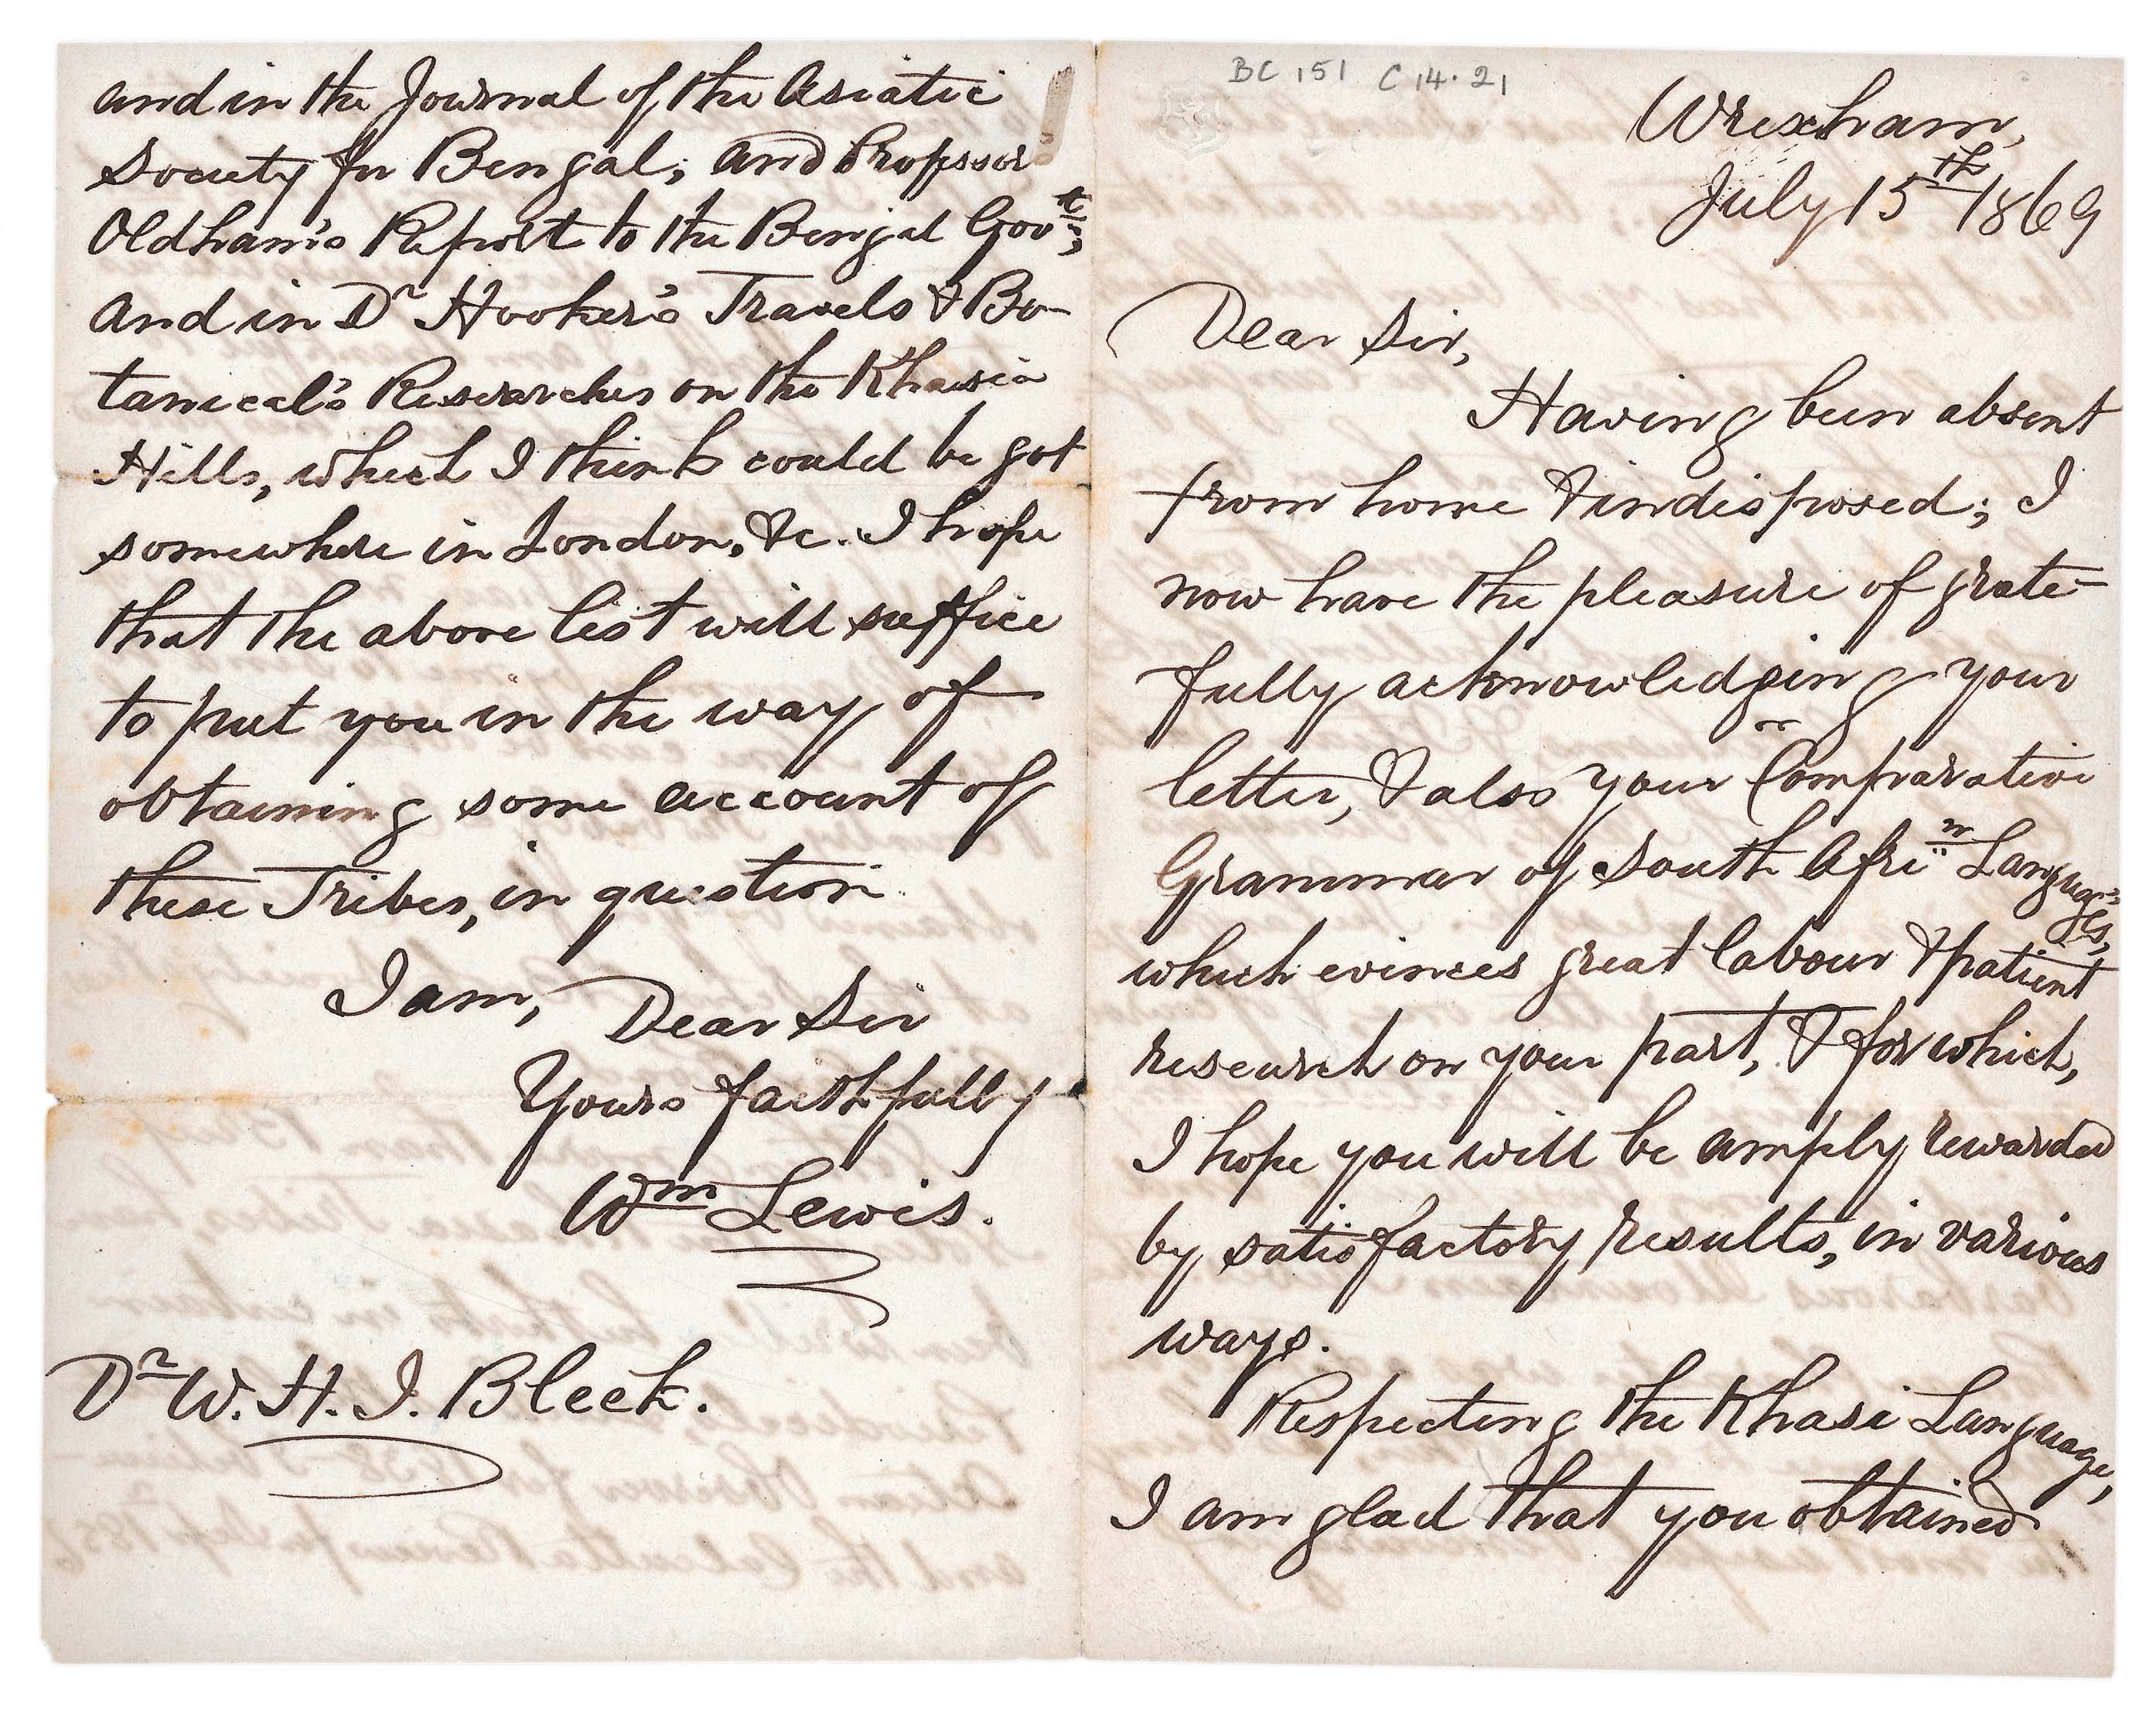 BC 151 C 14.21
Wrexham,
July 15th 1869
Dear Sir,
Having been absent
from home & indisposed; I
now have the pleasure of grate-
fully acknowledging your
letter, & also your Comparative
Grammar of South Afrin Langua-
ges,
which evinces great labour & patient
research on your part, & for which,
I hope you will be amply rewarded
by satisfactory results, in various
ways.
Respecting the Khasi Language,
I am glad that you obtained
and in the Journal of the Asiatic
Society for Bengal; and Professor
Oldham's Report to the Bengal Govt;
and in Dr Hooker's Travels & Bo-
tanical's Researches on the Khasia
Hills, which I think could be got
somewhere in London, &c. I hope
that the above list will suffice
to put you in the way of
obtaining some account of
these Tribes, in question.
I am, Dear Sir
Yours faithfully
Wm Lewis.
Dr W. H. I. Bleek.